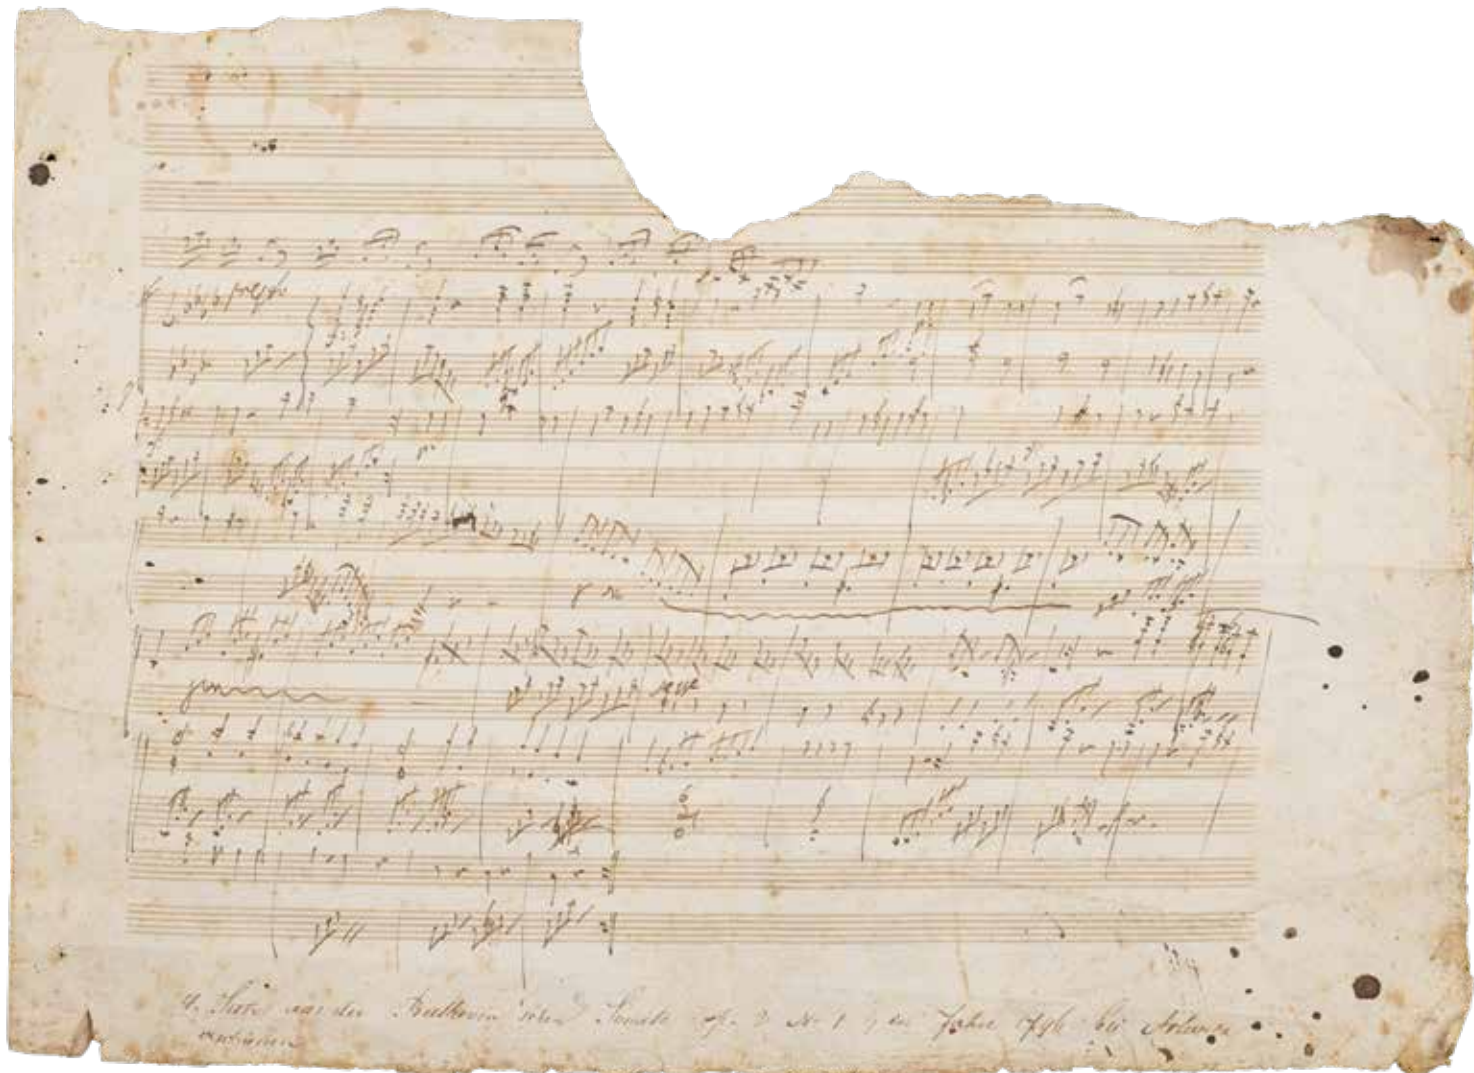 presto
segue
4. Satz aus der Beethoven'schen Sonate op. 2 No 1, im Jahre 1796 bei Artaria
erschienen